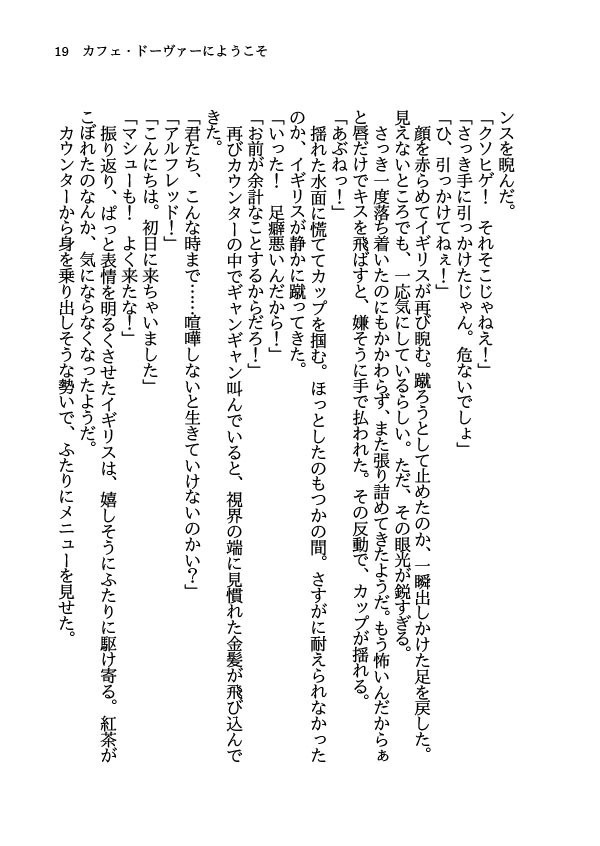 19 カフェ・ドーヴァーにようこそ
ンスを睨んだ。
「クソヒゲ！ それそこじゃねえ！」
「さっき手に引っかけたじゃん。危ないでしょ」
「ひ、引っかけてねぇ！」
顔を赤らめてイギリスが再び睨む。蹴ろうとして止めたのか、一瞬出しかけた足を戻した。
見えないところでも、一応気にしているらしい。ただ、その眼光が鋭すぎる。
さっき一度落ち着いたのにもかかわらず、また張り詰めてきたようだ。もう怖いんだからぁ
と唇だけでキスを飛ばすと、嫌そうに手で払われた。その反動で、カップが揺れる。
「あぶねっ！」
揺れた水面に慌ててカップを掴む。ほっとしたのもつかの間。さすがに耐えられなかった
のか、イギリスが静かに蹴ってきた。
「いった！ 足癖悪いんだから！」
「お前が余計なことするからだろ！」
再びカウンターの中でギャンギャン叫んでいると、視界の端に見慣れた金髪が飛び込んで
きた。
「君たち、こんな時まで……喧嘩しないと生きていけないのかい？」
「アルフレッド！」
「こんにちは。初日に来ちゃいました」
「マシューも！ よく来たな！」
振り返り、ぱっと表情を明るくさせたイギリスは、嬉しそうにふたりに駆け寄る。紅茶が
こぼれたのなんか、気にならなくなったようだ。
カウンターから身を乗り出しそうな勢いで、ふたりにメニューを見せた。